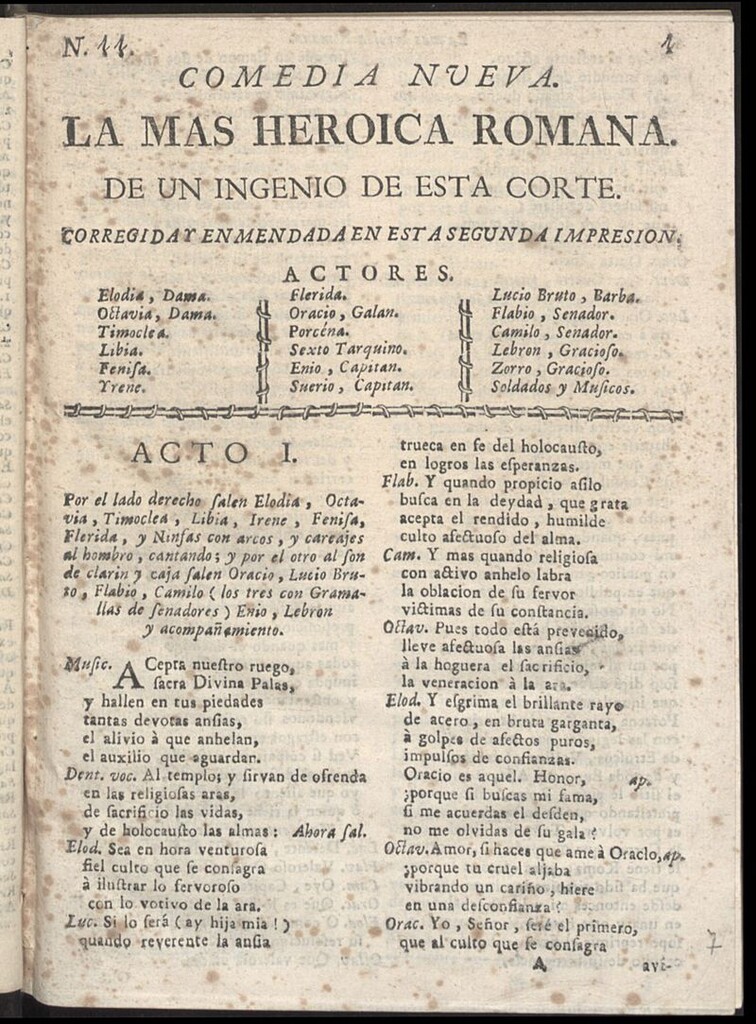 N. 11.
1
COMEDIA NUEVA.
LA MAS HEROICA ROMANA.
DE UN INGENIO DE ESTA CORTE.
CORREGIDA Y ENMENDADA EN ESTA SEGUNDA IMPRESION.
ACTORES.
Elodia, Dama.
Octavia, Dama.
Timoclea.
Libia.
Feniſa.
Yrene.
Flerida.
Oracio, Galan.
Porcena.
Sexto Tarquino.
Enio, Capitan.
Suerio, Capitan.
Lucio Bruto, Barba.
Flabio, Senador.
Camilo, Senador.
Lebron, Gracioſo.
Zorro, Gracioſo.
Soldados y Muſicos.
ACTO I.
Por el lado derecho ſalen Elodia, Octa-
via, Timoclea, Libia, Irene, Feniſa,
Flerida, y Ninfas con arcos, y carcajes
al hombro, cantando; y por el otro al ſon
de clarin y caja ſalen Oracio, Lucio Bru-
to, Flabio, Camilo (los tres con Grama-
llas de ſenadores) Enio, Lebron
y acompañamiento.
Muſic. ACepta nueſtro ruego,
ſacra Divina Palas,
y hallen en tus piedades
tantas devotas anſias,
el alivio à que anhelan,
el auxilio que aguardan.
Dent. voc. Al templo; y ſirvan de ofrenda
en las religioſas aras,
de ſacrificio las vidas,
y de holocauſto las almas: Ahora ſal.
Elod. Sea en hora venturoſa
fiel culto que ſe conſagra
à iluſtrar lo fervoroſo
con lo votivo de la ara.
Luc. Si lo ſerá (ay hija mia!)
quando reverente la anſia
trueca en fe del holocauſto,
en logros las eſperanzas.
Flab. Y quando propicio aſilo
buſca en la deydad, que grata
acepta el rendido, humilde
culto afectuoſo del alma.
Cam. Y mas quando religioſa
con activo anhelo labra
la oblacion de ſu fervor
victimas de ſu conſtancia.
Octav. Pues todo eſtá prevenido,
lleve afectuoſa las anſias
à la hoguera el ſacrificio,
la veneracion à la ara.
Elod. Y eſgrima el brillante rayo
de acero, en bruta garganta,
à golpes de afectos puros,
impulſos de confianzas.
Oracio es aquel. Honor, ap.
¿porque ſi buſcas mi fama,
ſi me acuerdas el deſden,
no me olvidas de ſu gala?
Octav. Amor, ſi haces que ame à Oracio, ap.
¿porque tu cruel aljaba
vibrando un cariño, hiere
en una deſconfianza?
Orac. Yo, Señor, ſeré el primero,
que al culto que ſe conſagra
A
avi-
7